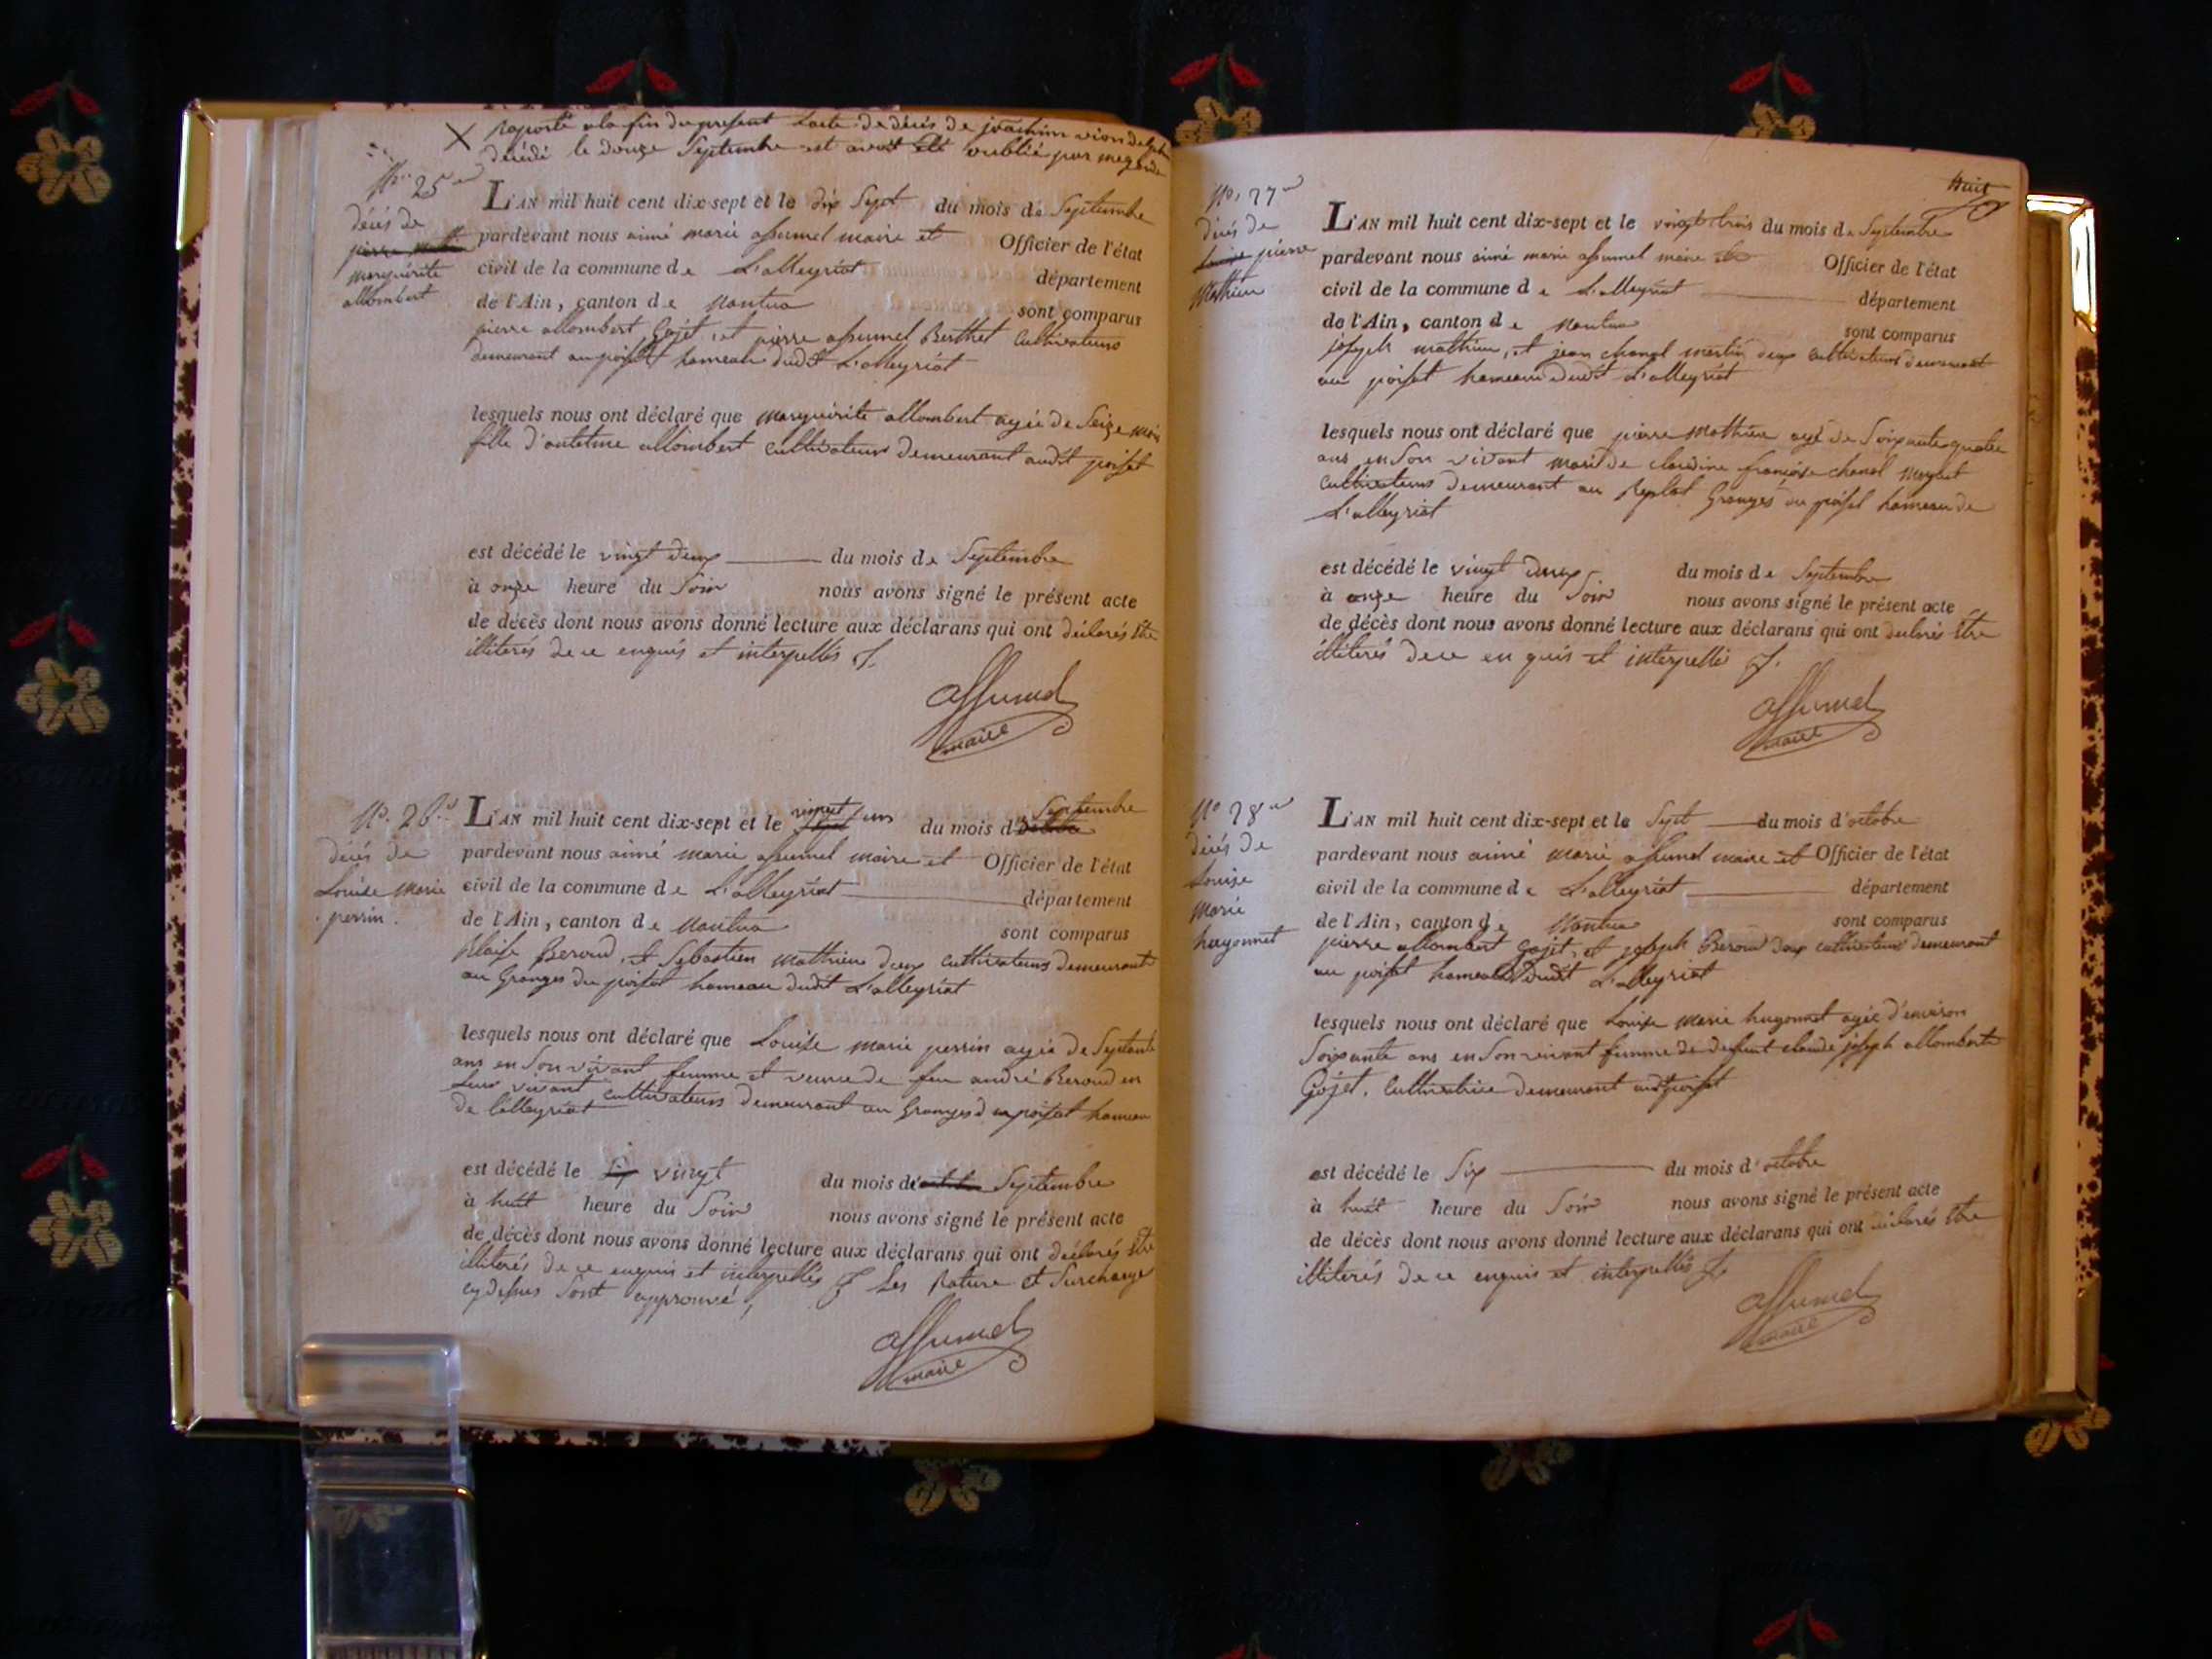 X Reporté a la fin du present L'acte de décès de joachim vion
décédé le douze Septembre et avoit été oublié par megarde
No. 25
décès de
marguerite
allombert
L'AN mil huit cent dix-sept et le dix Sept du mois de Septembre
pardevant nous aimé marie assumel maire et Officier de l'état
civil de la commune de L'alleyriat département
de l'Ain, canton de Nantua sont comparus
pierre allombert Gojet, et pierre assumel Berthet Cultivateurs
demeurant au poisat hameau dudit L'alleyriat
lesquels nous ont déclaré que marguerite allombert agée de Seize mois
fille d'antelme allombert Cultivateur demeurant audit poisat
est décédé le vingt deux du mois de Septembre
à onze heure du Soir nous avons signé le présent acte
de décès dont nous avons donné lecture aux déclarans qui ont déclarés être
illiterés de ce enquis et interpellés
assumel
maire
No. 26
décès de
Louise Marie
perrin.
L'AN mil huit cent dix-sept et le vingt un du mois d' Septembre
pardevant nous aimé marie assumel maire et Officier de l'état
civil de la commune de L'alleyriat département
de l'Ain, canton de Nantua sont comparus
Blaise Beroud, et Sebastien mathieu deux cultivateurs demeurants
au Granges du poisat hameau dudit L'alleyriat
lesquels nous ont déclaré que Louise marie perrin agée de Septante
ans en Son vivant femme et veuve de feu andré Beroud en
Leur vivant cultivateurs demeurant au Granges du poisat hameau
de l'alleyriat
est décédé le vingt du mois de Septembre
à huit heure du Soir nous avons signé le présent acte
de décès dont nous avons donné lecture aux déclarans qui ont déclarés être
illiterés de ce enquis et interpellés Les Rature et Surcharge
cy dessus Sont approuvé,
assumel
maire
Huit
No. 27
décès de
pierre
Mathieu
L'AN mil huit cent dix-sept et le vingt trois du mois de Septembre
pardevant nous aimé marie assumel maire Officier de l'état
civil de la commune de L'alleyriat département
de l'Ain, canton de Nantua sont comparus
joseph mathieu, et jean chanel martin deux cultivateurs demeurant
au poisat hameau dudit L'alleyriat
lesquels nous ont déclaré que pierre Mathieu agé de Soixante quatre
ans en Son vivant mari de claudine françoise chanel
Cultivateurs demeurant au Replat Granges du poisat hameau de
L'alleyriat
est décédé le vingt deux du mois de Septembre
à onze heure du Soir nous avons signé le présent acte
de décès dont nous avons donné lecture aux déclarans qui ont declarés être
illiterés de ce en quis et interpellé
assumel
maire
No 28
décès de
Louise
Marie
hugonnet
L'AN mil huit cent dix-sept et le Sept du mois d'octobre
pardevant nous aimé Marie assumel maire et Officier de l'état
civil de la commune de L'alleyriat département
de l'Ain, canton de Nantua sont comparus
pierre allombert Gojet, et joseph Beroud deux cultivateurs demeurant
au poisat hameau dudit L'alleyriat
lesquels nous ont déclaré que Louise Marie hugonnet agée d'environ
Soixante ans en Son vivant femme de defunt claude joseph allombert
Gojet, Cultivatrice demeurant audit poisat
est décédé le Six du mois d'octobre
à huit heure du Soir nous avons signé le présent acte
de décès dont nous avons donné lecture aux déclarans qui ont déclarés être
illiterés de ce enquis et interpellés
assumel
maire